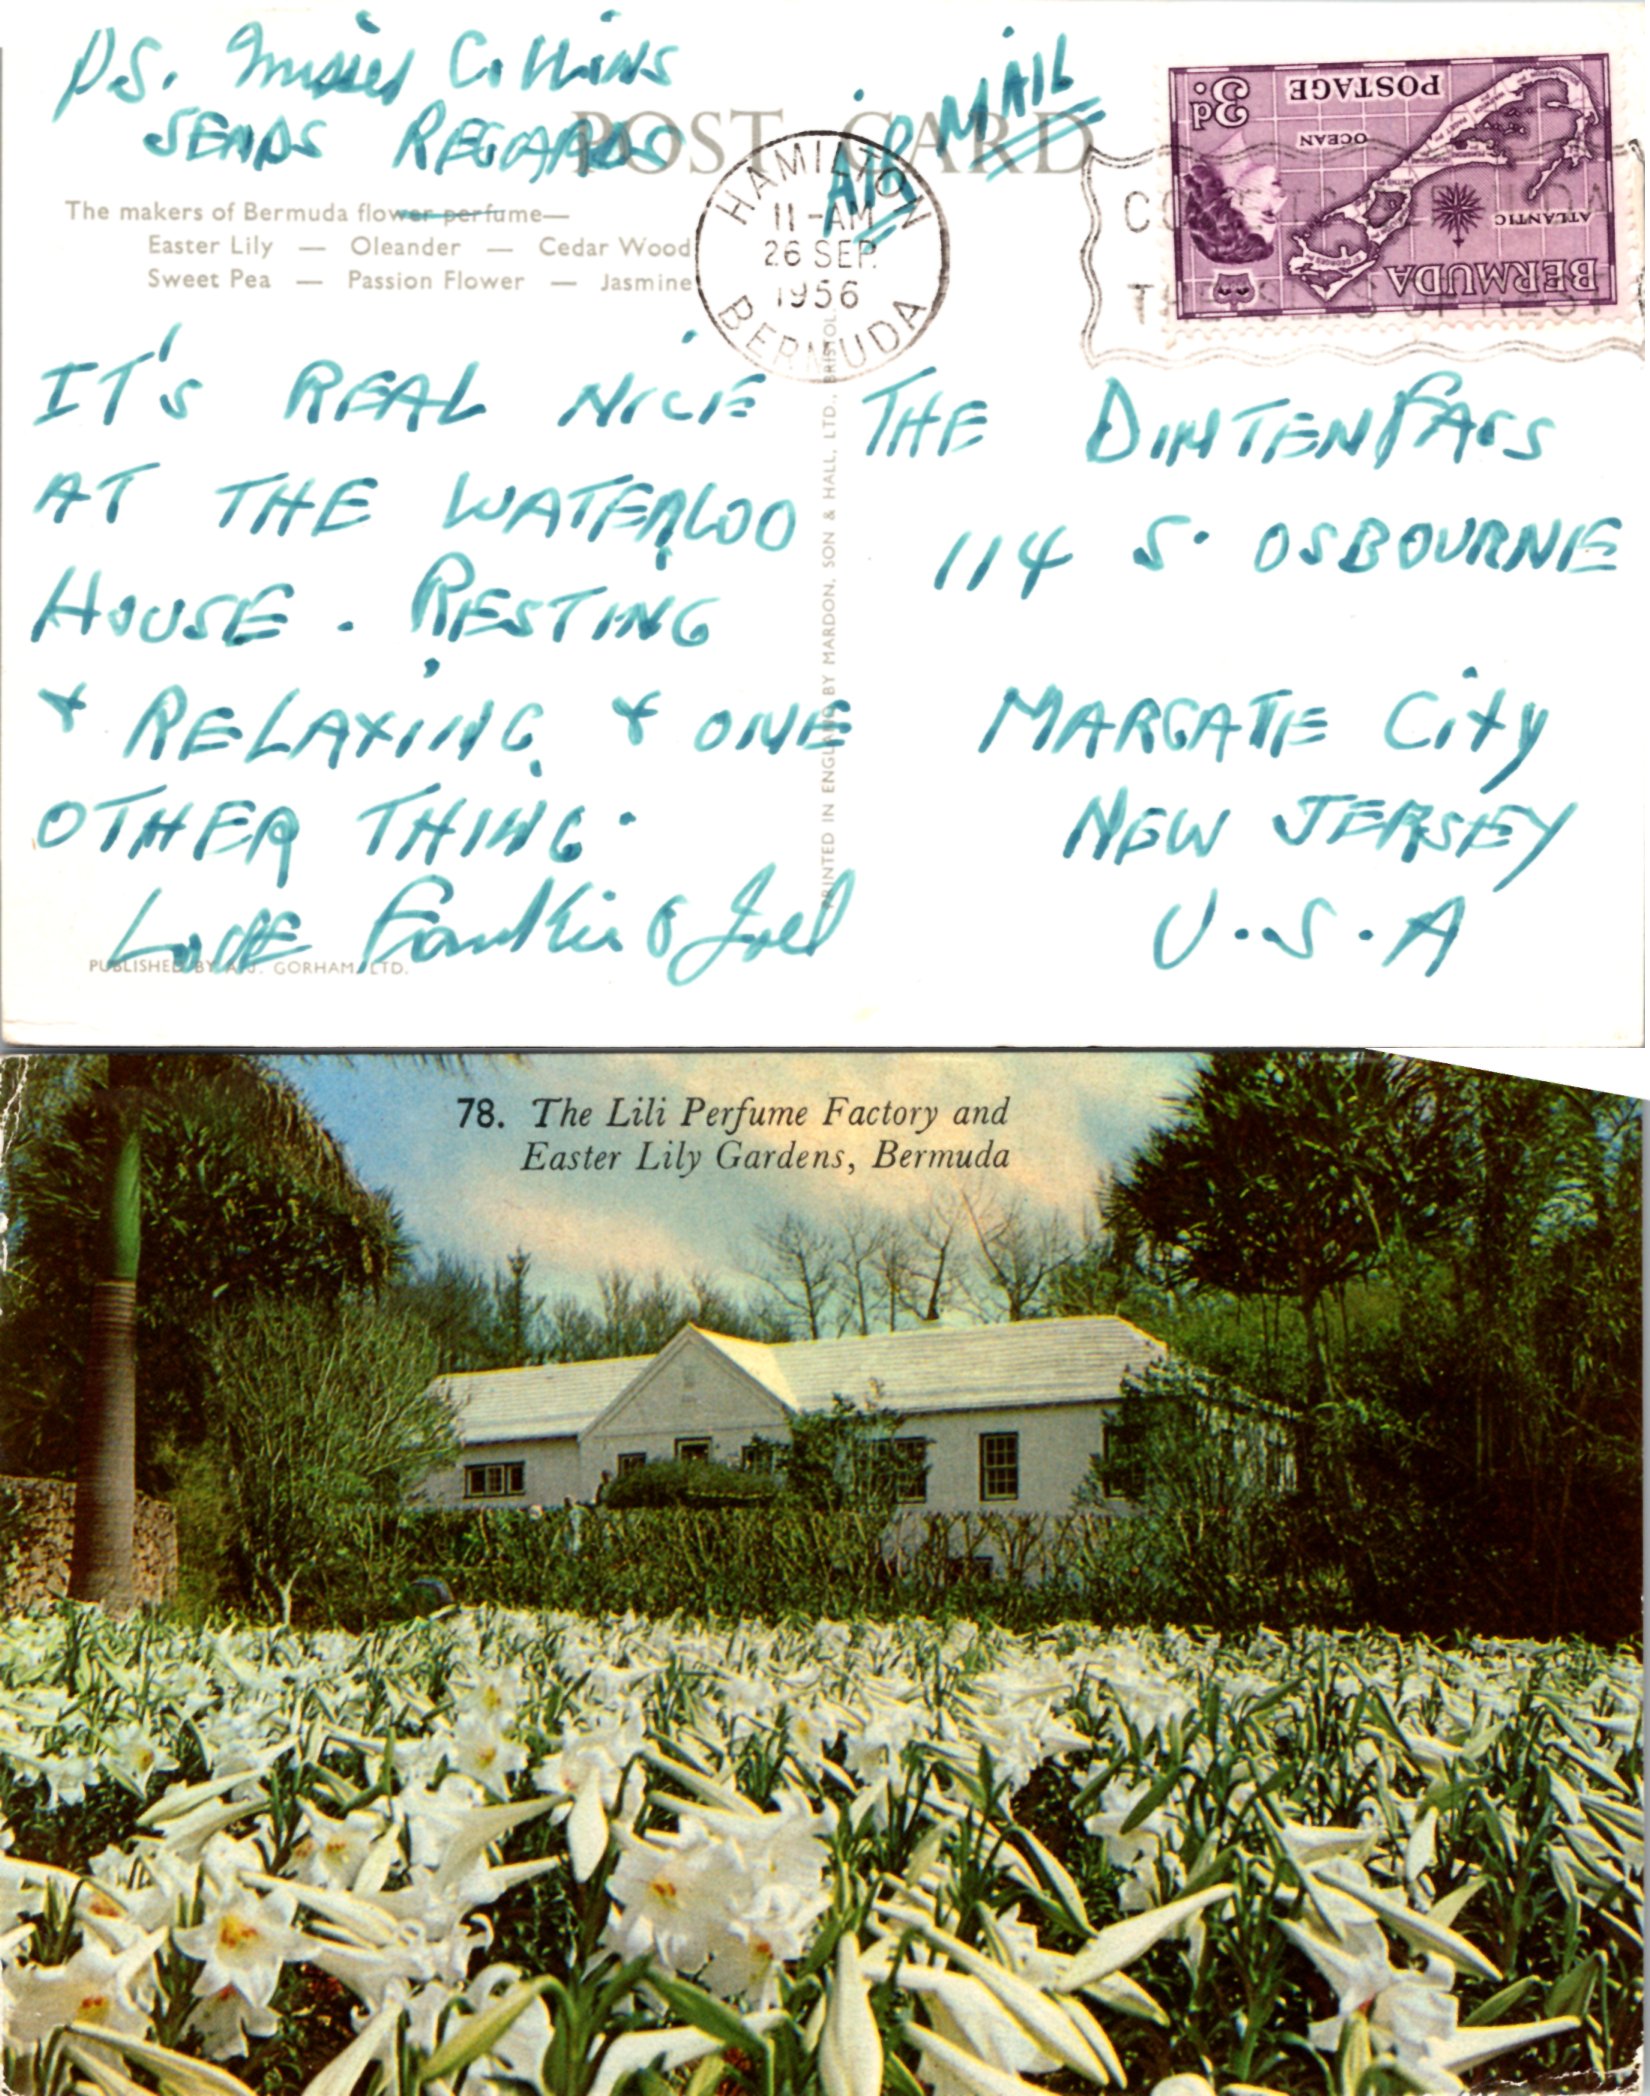 P.S. Missed Collins
SENDS REGARDS
AIR MAIL
POST CARD
The makers of Bermuda flower perfume—
Easter Lily — Oleander — Cedar Wood
Sweet Pea — Passion Flower — Jasmine
HAMILTON
11-AM
26 SEP.
1956
BERMUDA
3d
POSTAGE
OCEAN
ATLANTIC
BERMUDA
IT'S REAL NICE
AT THE WATERLOO
HOUSE. RESTING
& RELAXING & ONE
OTHER THING.
LOVE & Joel
PUBLISHED BY A.J. GORHAM, LTD.
PRINTED IN ENGLAND BY MARDON, SON & HALL, LTD., BRISTOL.
THE DINTENFASS
114 S. OSBOURNE
MARGATE City
NEW JERSEY
U.S.A
78. The Lili Perfume Factory and
Easter Lily Gardens, Bermuda